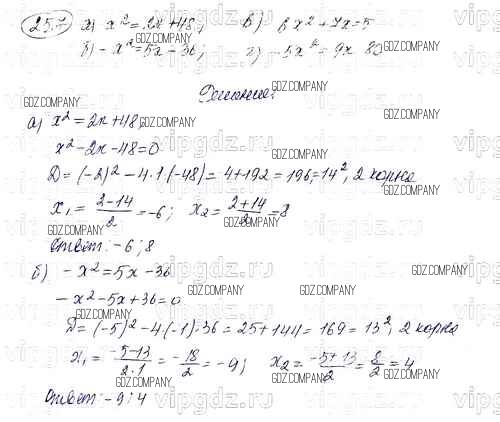 25.7 а) x² = 2x + 48; в) 6x² + 7x = 5
б) -x² = 5x - 36; г) -5x² = 9x - 80
GDZ.COMPANY
Решение:
а) x² = 2x + 48
x² - 2x - 48 = 0
D = (-2)² - 4·1·(-48) = 4 + 192 = 196 = 14², 2 корня
x₁ = (2-14)/2 = -6; x₂ = (2+14)/2 = 8
Ответ: -6; 8
б) -x² = 5x - 36
-x² - 5x + 36 = 0
D = (-5)² - 4(-1)·36 = 25 + 144 = 169 = 13², 2 корня
x₁ = (-5-13)/(2·1) = -18/2 = -9; x₂ = (-5+13)/2 = 8/2 = 4
Ответ: -9; 4
vipgdz.com